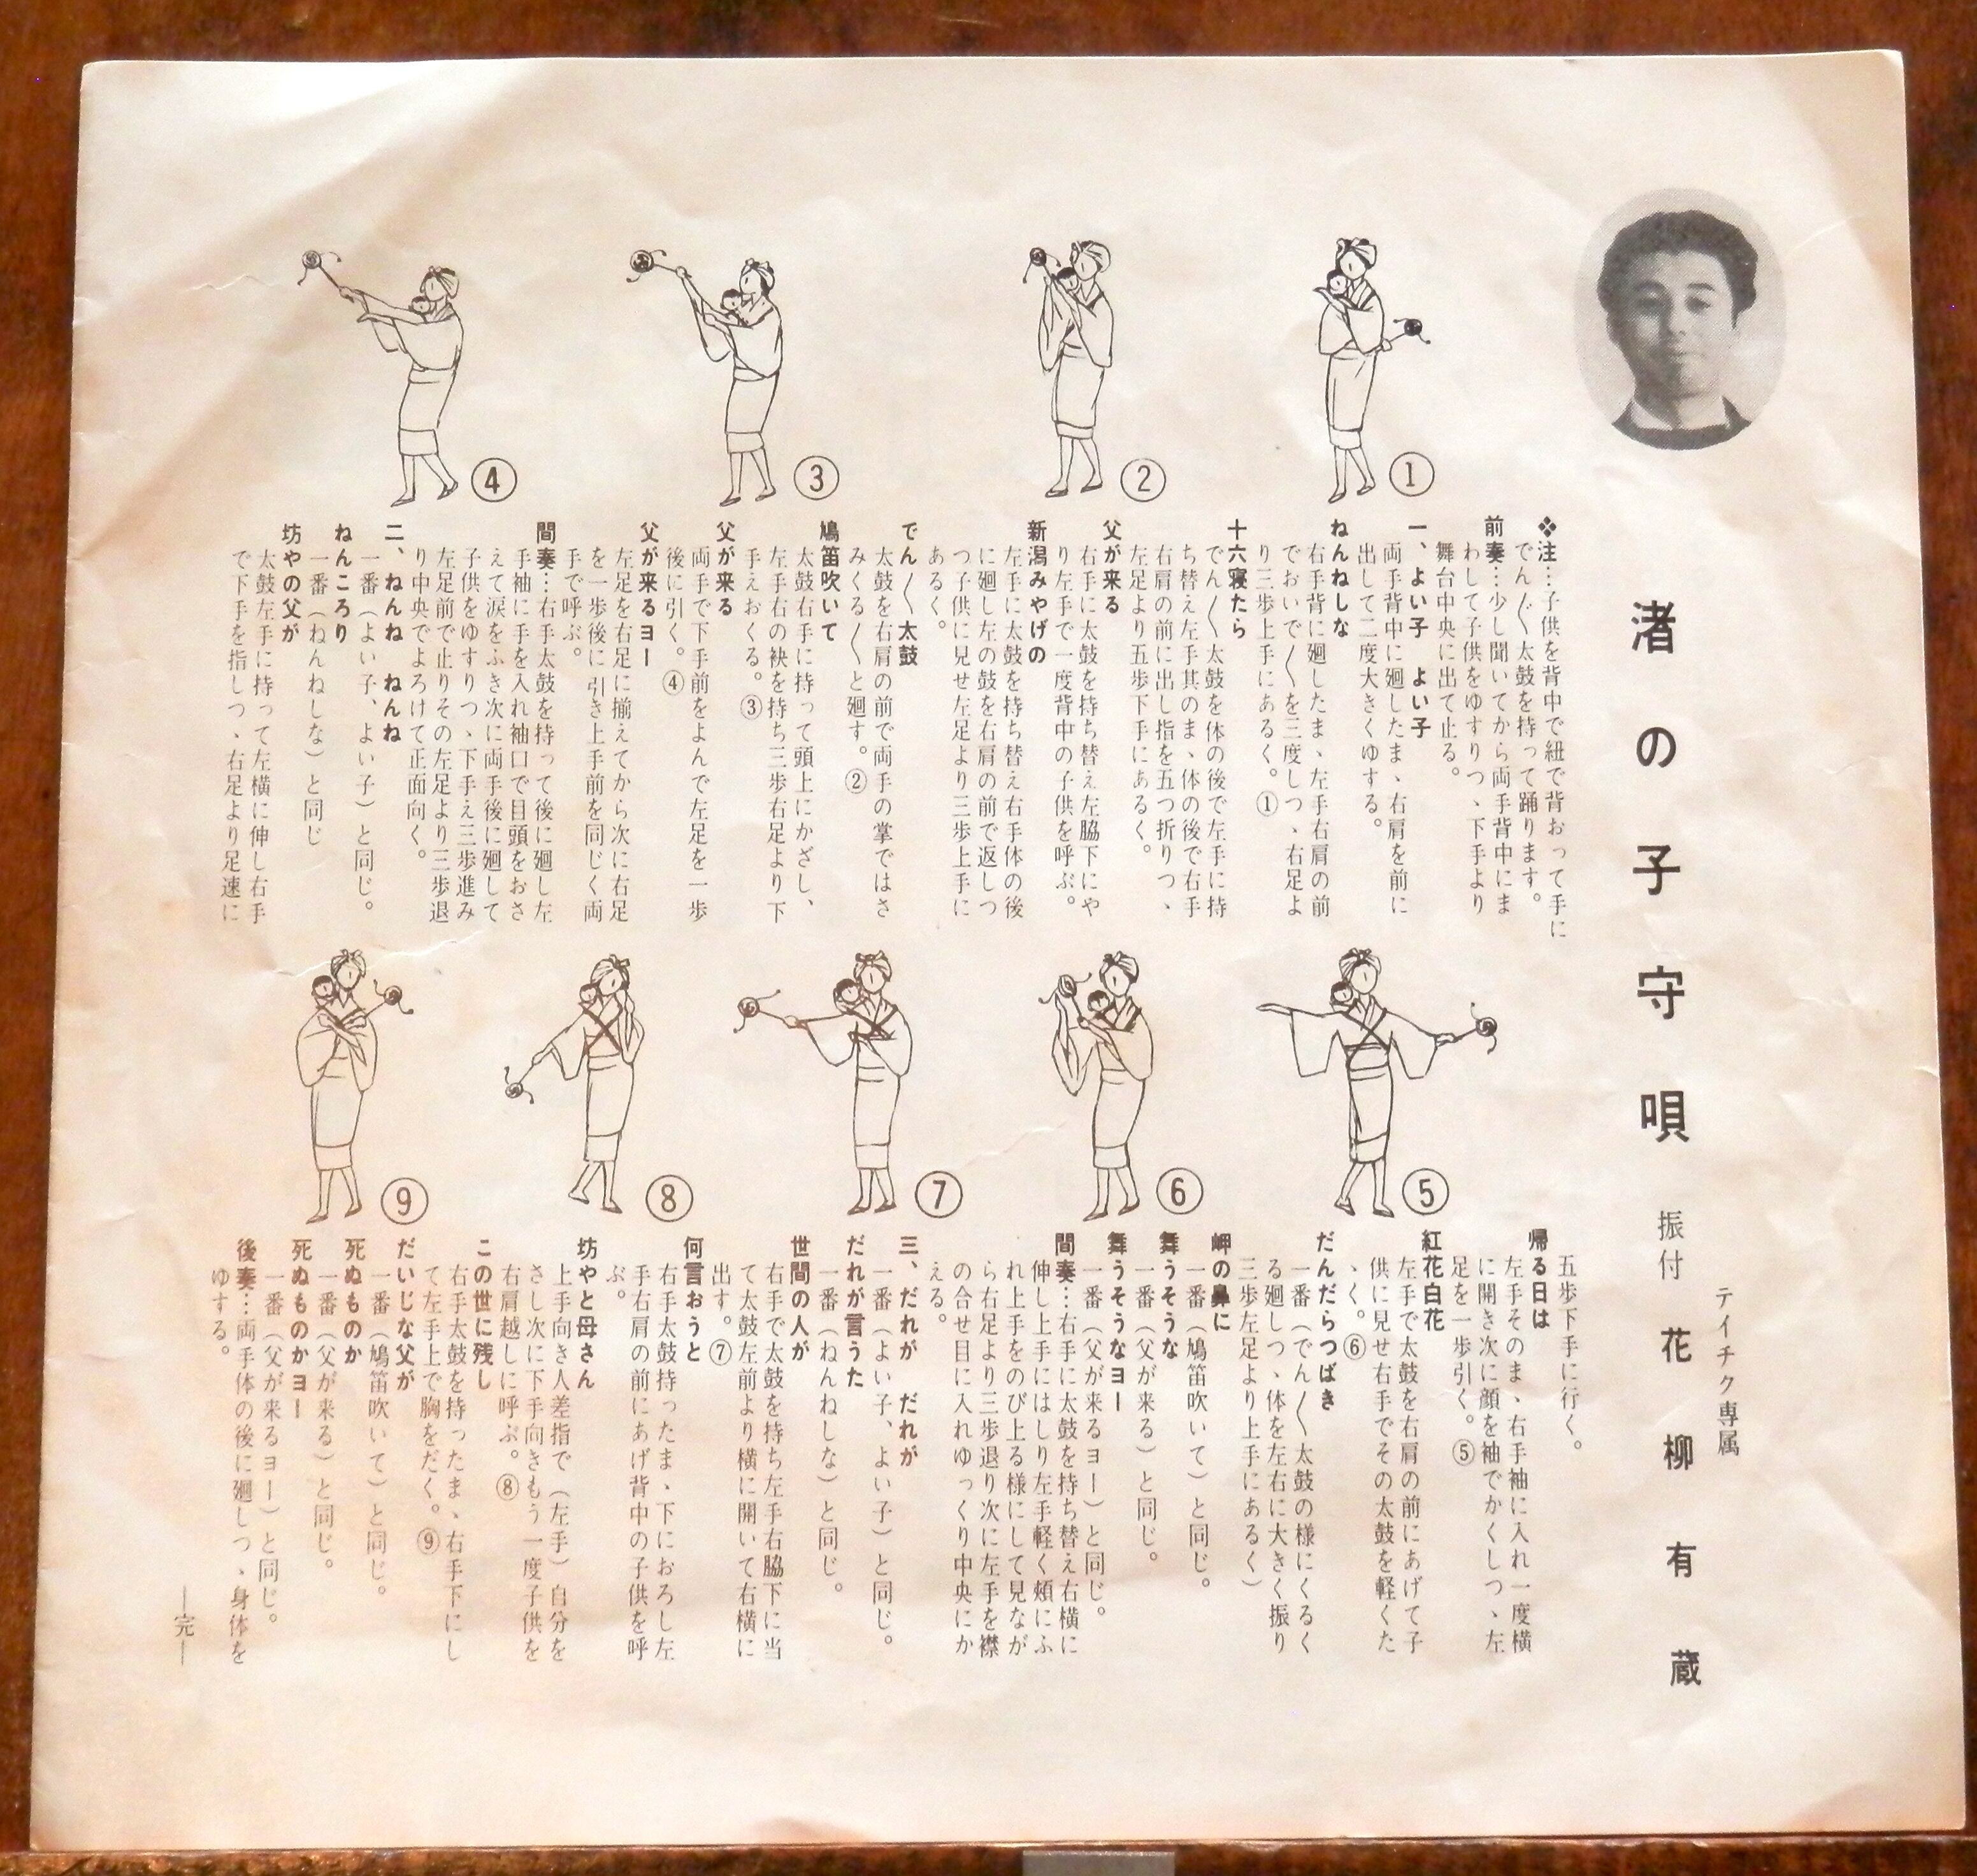 渚の子守唄
振付 花柳有蔵
テイチク専属
①
②
③
④
❖注…子供を背中で紐で背おって手に
でん〳〵太鼓を持って踊ります。
前奏…少し聞いてから両手背中にま
わして子供をゆすりつゝ下手より
舞台中央に出て止る。
一、よい子 よい子
両手背中に廻したまゝ右肩を前に
出して二度大きくゆする。
ねんねしな
右手背に廻したまゝ左手右肩の前
でおいで〳〵を三度しつゝ右足よ
り三歩上手にあるく。①
十六寝たら
でん〳〵太鼓を体の後で左手に持
ち替え左手其のまゝ体の後で右手
右肩の前に出し指を五つ折りつゝ
左足より五歩下手にあるく。
父が来る
右手に太鼓を持ち替え左脇下にや
り左手で一度背中の子供を呼ぶ。
新潟みやげの
左手に太鼓を持ち替え右手体の後
に廻し左の鼓を右肩の前で返しつ
つ子供に見せ左足より三歩上手に
あるく。
でん〳〵太鼓
太鼓を右肩の前で両手の掌ではさ
みくる〳〵と廻す。②
鳩笛吹いて
太鼓右手に持って頭上にかざし、
左手右の袂を持ち三歩右足より下
手えおくる。③
父が来る
両手で下手前をよんで左足を一歩
後に引く。④
父が来るヨー
左足を右足に揃えてから次に右足
を一歩後に引き上手前を同じく両
手で呼ぶ。
間奏…右手太鼓を持って後に廻し左
手袖に手を入れ袖口で目頭をおさ
えて涙をふき次に両手後に廻して
子供をゆすりつゝ下手え三歩進み
左足前で止りその左足より三歩退
り中央でよろけて正面向く。
二、ねんね ねんね
一番(よい子、よい子)と同じ。
ねんころり
一番(ねんねしな)と同じ
坊やの父が
太鼓左手に持って左横に伸し右手
で下手を指しつゝ右足より足速に
⑤
⑥
⑦
⑧
⑨
五歩下手に行く。
帰る日は
左手そのまゝ右手袖に入れ一度横
に開き次に顔を袖でかくしつゝ左
足を一歩引く。⑤
紅花白花
左手で太鼓を右肩の前にあげて子
供に見せ右手でその太鼓を軽くた
ゝく。⑥
だんだらつばき
一番(でん〳〵太鼓の様にくるく
る廻しつゝ体を左右に大きく振り
三歩左足より上手にあるく)
岬の鼻に
一番(鳩笛吹いて)と同じ。
舞うそうな
一番(父が来る)と同じ。
舞うそうなヨー
一番(父が来るヨー)と同じ。
間奏…右手に太鼓を持ち替え右横に
伸し上手にはしり左手軽く頬にふ
れ上手をのび上る様にして見なが
ら右足より三歩退り次に左手を襟
の合せ目に入れゆっくり中央にか
える。
三、だれが だれが
一番(よい子、よい子)と同じ。
だれが言うた
一番(ねんねしな)と同じ。
世間の人が
右手で太鼓を持ち左手右脇下に当
て太鼓左前より横に開いて右横に
出す。⑦
何言おうと
右手太鼓持ったまゝ下におろし左
手右肩の前にあげ背中の子供を呼
ぶ。
坊やと母さん
上手向き人差指で(左手)自分を
さし次に下手向きもう一度子供を
右肩越しに呼ぶ。⑧
この世に残し
右手太鼓を持ったまゝ右手下にし
て左手上で胸をだく。⑨
だいじな父が
一番(鳩笛吹いて)と同じ。
死ぬものか
一番(父が来る)と同じ。
死ぬものかヨー
一番(父が来るヨー)と同じ。
後奏…両手体の後に廻しつゝ身体を
ゆする。
―完―